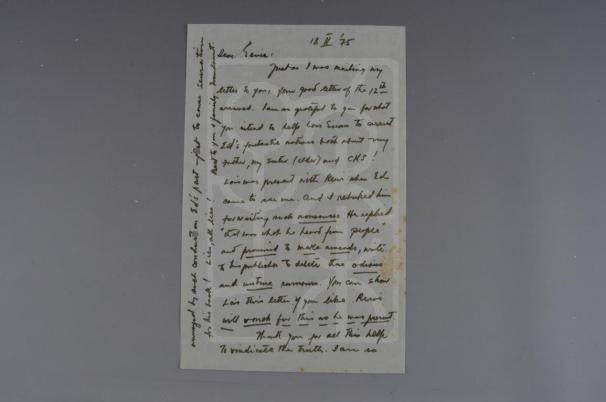 18 II '75
Dear Gene:
Just as I was mailing my
letter to you, your good letter of the 12th
arrived. I am so grateful to you for what
you intend to help Lois Snow to correct
Ed's fantastic notions both about my
mother, my sister (elder) and CKS!
Lois was present with Rewi when Ed
came to see me. And I rebuked him
for writing such nonsense. He replied
"that was what he heard from people"
and promised to make amends, write
to his publisher to delete the odious
and untrue rumours. You can show
Lois this letter if you like. Rewi
will vouch for this as he was present.
Thank you for all this help
to vindicate the truth. I am so
enraged by such conduct on Ed's part just to cause sensation
for his book! Lies, all lies!
Best to you & family,